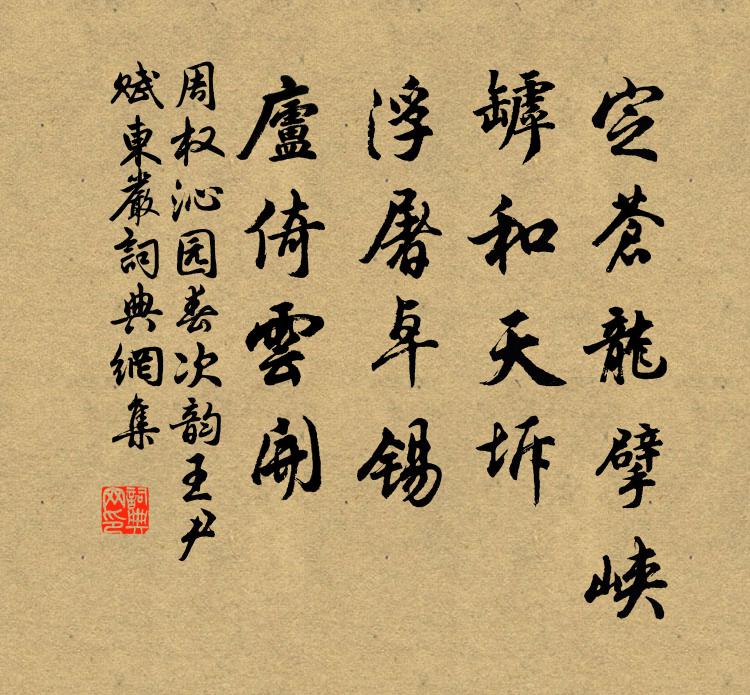 定蒼龍擘峽
罅和天坼
浮屠卓錫
廬倚雲開
周权沁园春次韵王尹
賦東巖詞典網集
詞典網印